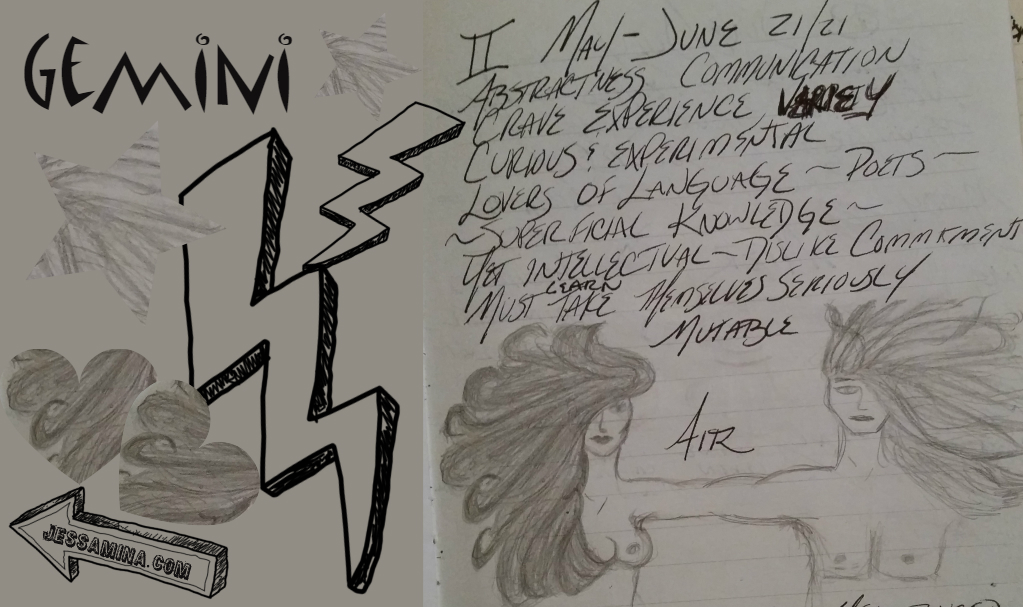 GEMINI
JESSAMINA.COM
II MAY-JUNE 21/21
ABSTRACTNESS COMMUNICATION
CRAVE EXPERIENCE VARIETY
CURIOUS & EXPERIMENTAL
LOVERS OF LANGUAGE ~ POETS ~
~SUPERFICIAL KNOWLEDGE ~
YET INTELLECTUAL - DISLIKE COMMITMENT
LEARN
MUST TAKE THEMSELVES SERIOUSLY
MUTABLE
AIR